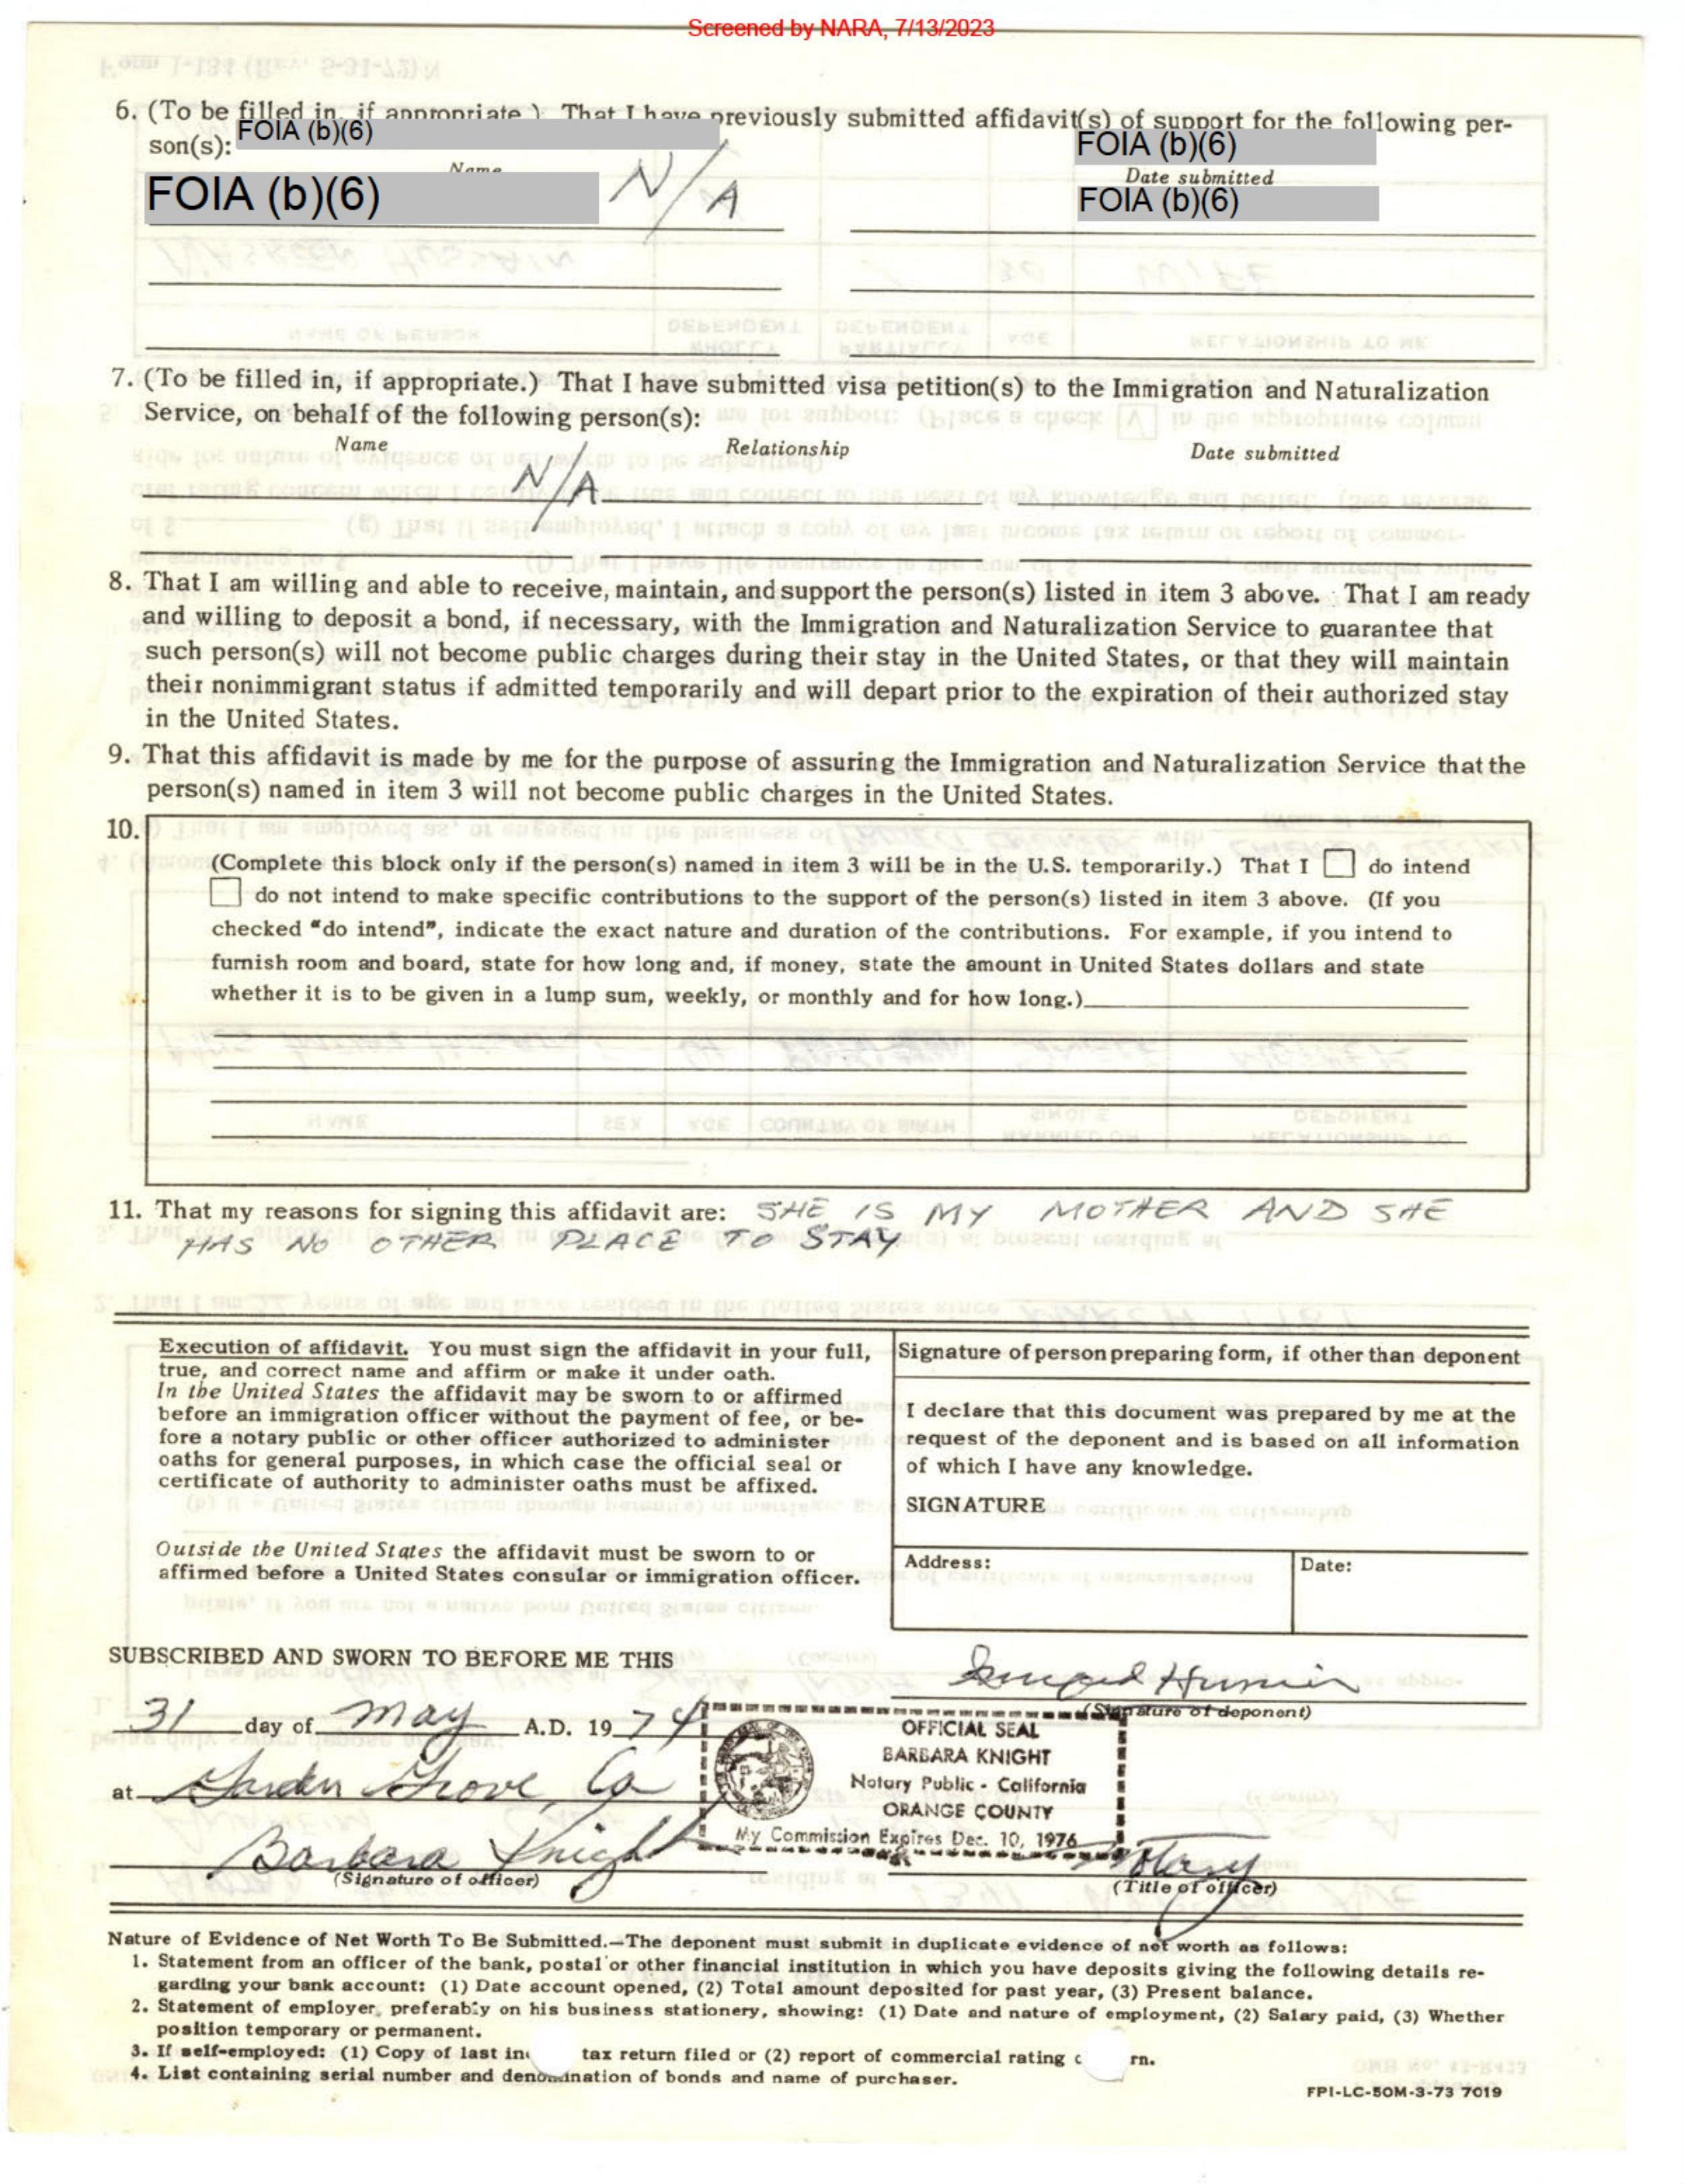 Screened by NARA, 7/13/2023
6. (To be filled in, if appropriate.) That I have previously submitted affidavit(s) of support for the following per-
son(s): FOIA (b)(6) FOIA (b)(6)
Name Date submitted
FOIA (b)(6) N/A FOIA (b)(6)
7. (To be filled in, if appropriate.) That I have submitted visa petition(s) to the Immigration and Naturalization
Service, on behalf of the following person(s):
Name Relationship Date submitted
N/A
8. That I am willing and able to receive, maintain, and support the person(s) listed in item 3 above. That I am ready
and willing to deposit a bond, if necessary, with the Immigration and Naturalization Service to guarantee that
such person(s) will not become public charges during their stay in the United States, or that they will maintain
their nonimmigrant status if admitted temporarily and will depart prior to the expiration of their authorized stay
in the United States.
9. That this affidavit is made by me for the purpose of assuring the Immigration and Naturalization Service that the
person(s) named in item 3 will not become public charges in the United States.
10.
(Complete this block only if the person(s) named in item 3 will be in the U.S. temporarily.) That I ☐ do intend
☐ do not intend to make specific contributions to the support of the person(s) listed in item 3 above. (If you
checked "do intend", indicate the exact nature and duration of the contributions. For example, if you intend to
furnish room and board, state for how long and, if money, state the amount in United States dollars and state
whether it is to be given in a lump sum, weekly, or monthly and for how long.)
11. That my reasons for signing this affidavit are: SHE IS MY MOTHER AND SHE
HAS NO OTHER PLACE TO STAY
Execution of affidavit. You must sign the affidavit in your full,
true, and correct name and affirm or make it under oath.
In the United States the affidavit may be sworn to or affirmed
before an immigration officer without the payment of fee, or be-
fore a notary public or other officer authorized to administer
oaths for general purposes, in which case the official seal or
certificate of authority to administer oaths must be affixed.
Outside the United States the affidavit must be sworn to or
affirmed before a United States consular or immigration officer.
Signature of person preparing form, if other than deponent
I declare that this document was prepared by me at the
request of the deponent and is based on all information
of which I have any knowledge.
SIGNATURE
Address: Date:
SUBSCRIBED AND SWORN TO BEFORE ME THIS
(Signature of deponent)
31 day of May A.D. 19 74
at Garden Grove, Ca
OFFICIAL SEAL
BARBARA KNIGHT
Notary Public - California
ORANGE COUNTY
My Commission Expires Dec. 10, 1976
Barbara Knight Notary
(Signature of officer) (Title of officer)
Nature of Evidence of Net Worth To Be Submitted.—The deponent must submit in duplicate evidence of net worth as follows:
1. Statement from an officer of the bank, postal or other financial institution in which you have deposits giving the following details re-
garding your bank account: (1) Date account opened, (2) Total amount deposited for past year, (3) Present balance.
2. Statement of employer, preferably on his business stationery, showing: (1) Date and nature of employment, (2) Salary paid, (3) Whether
position temporary or permanent.
3. If self-employed: (1) Copy of last tax return filed or (2) report of commercial rating
4. List containing serial number and denomination of bonds and name of purchaser.
FPI-LC-50M-3-73 7019